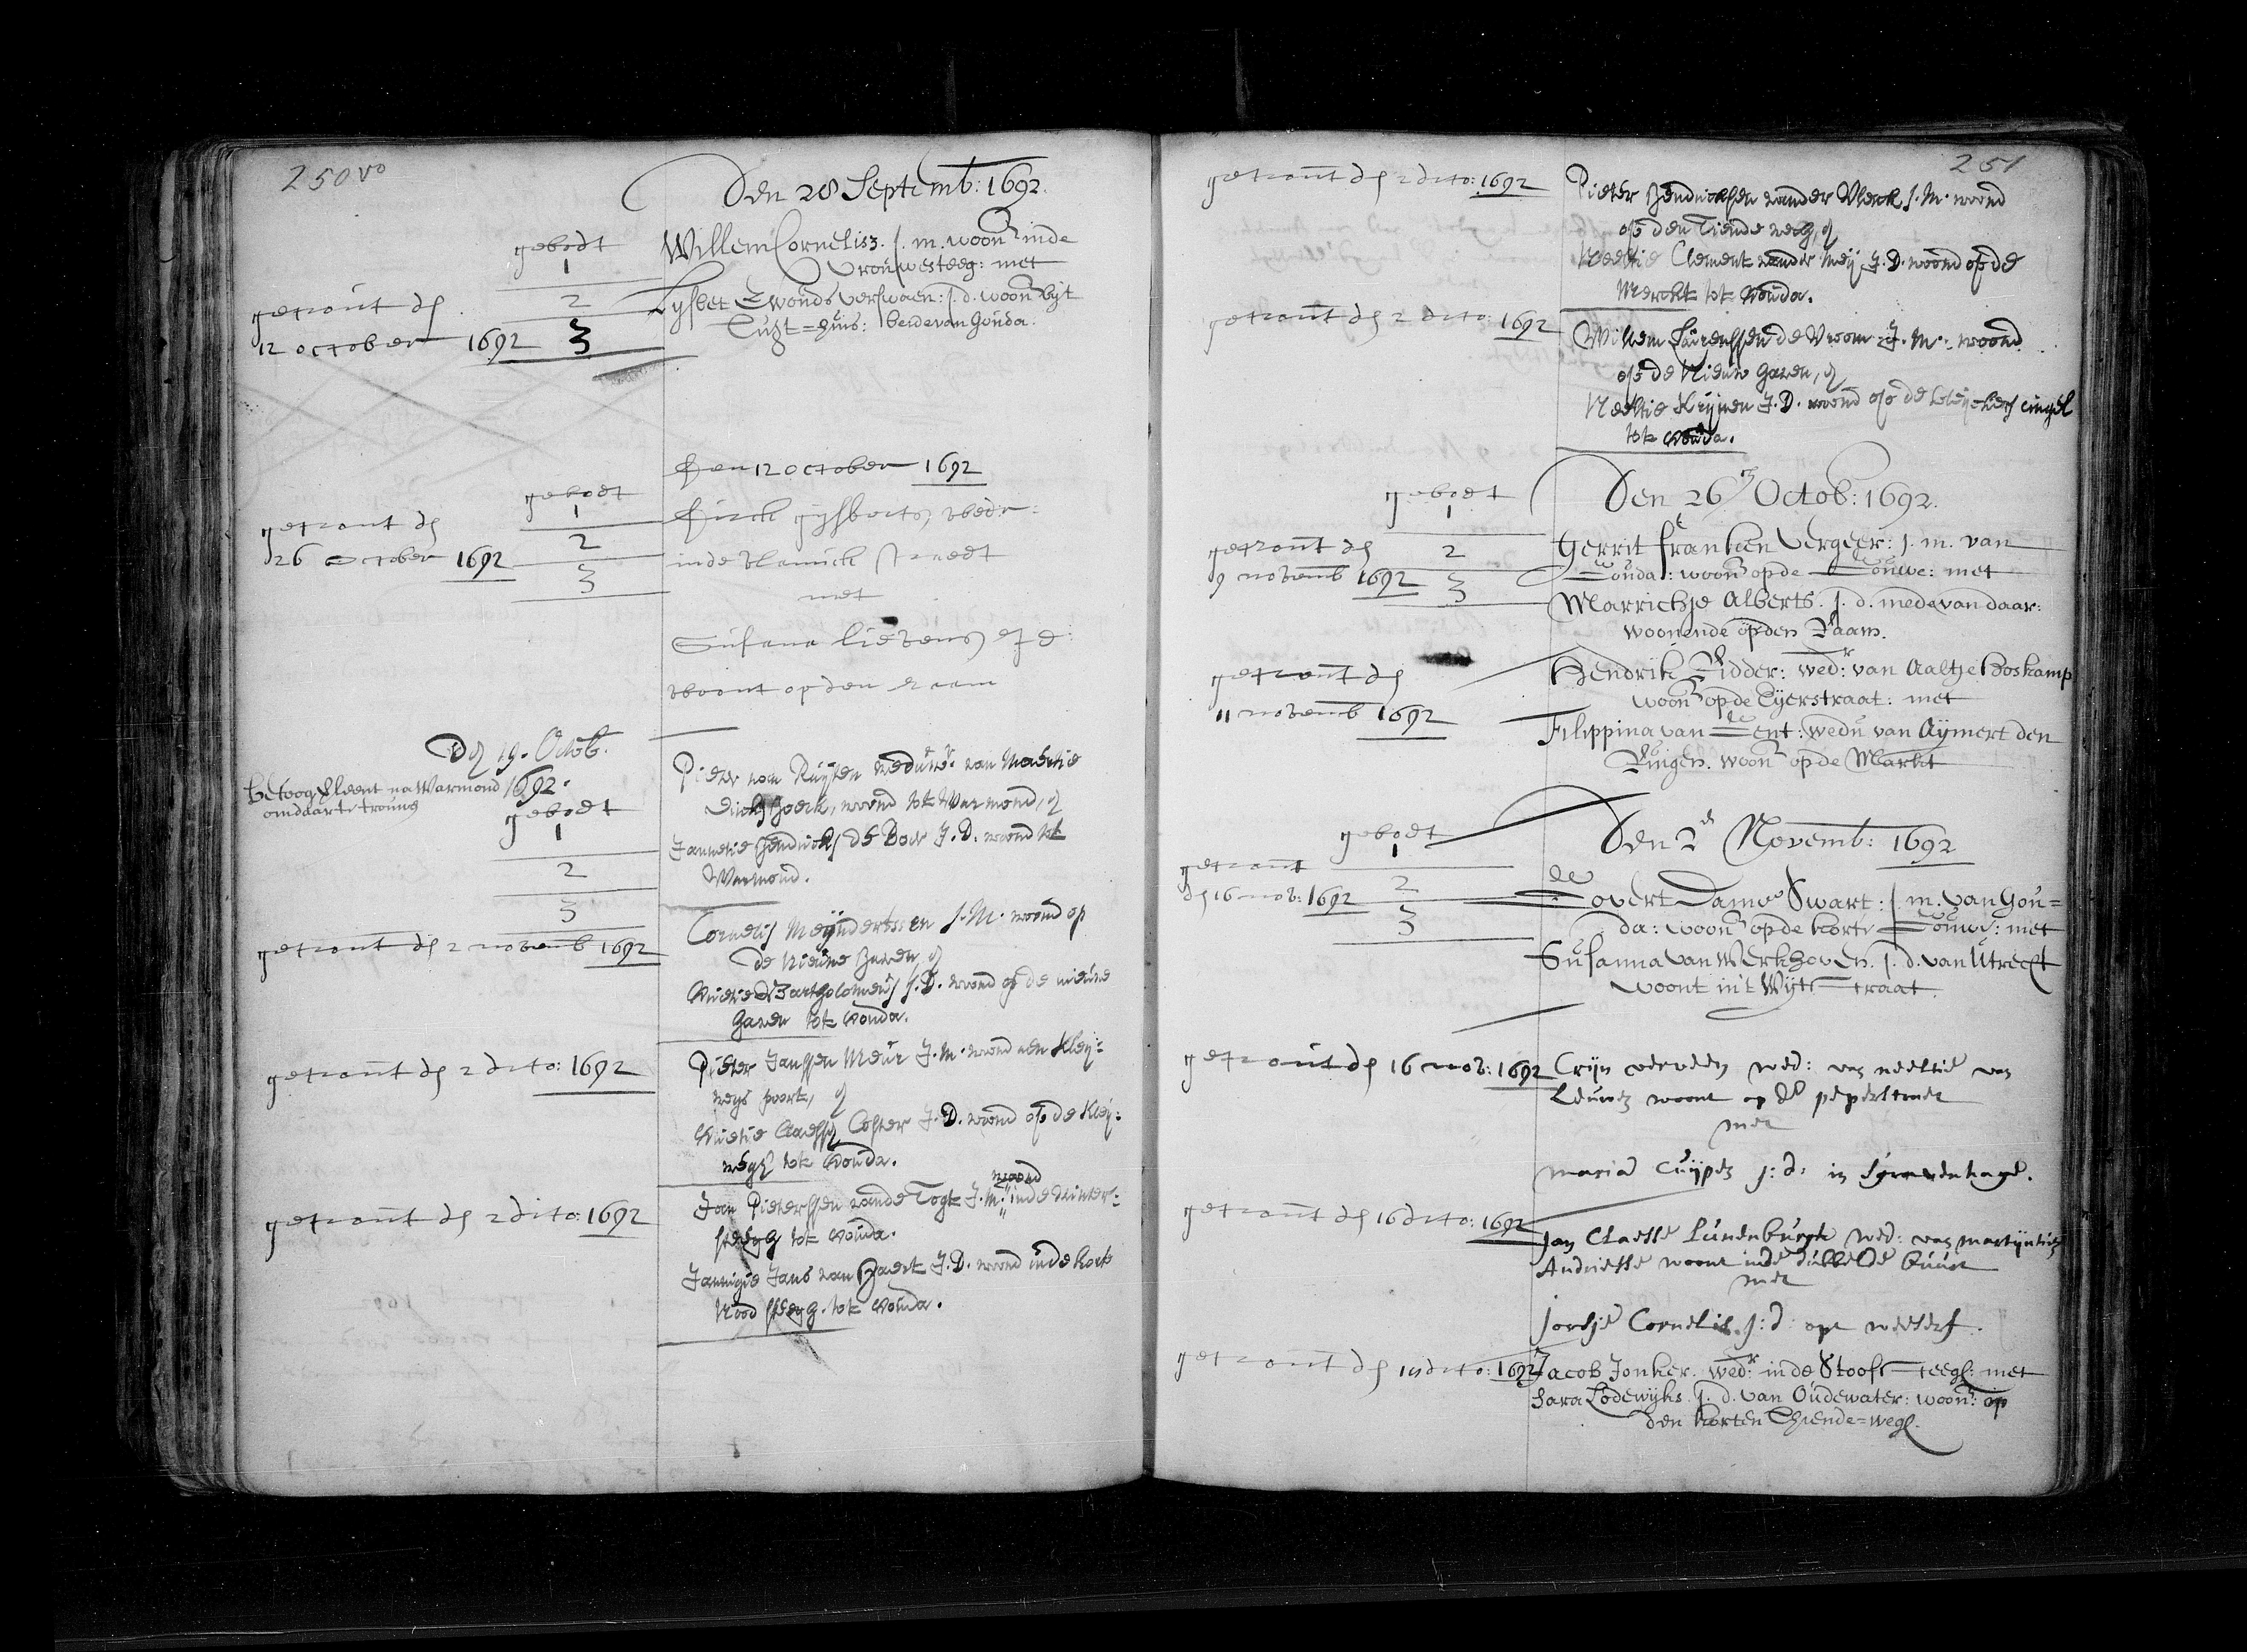 250 vo
Den 28 Septemb: 1692.
gebodt
1
2
3
getrout den
12 october 1692
Willem Cornelisz. j. m. woon.d inde
Vrouwesteeg: met
Lysbet Ewouds Verswaen: j. d. woon.d byt
Tught=huis: beide van Gouda.
Den 12 october 1692
gebodt
1
2
3
getrout den
26 October 1692
Dirck gijsberts, weder:
inde vlamick straedt
met
Susana lievens J d:
woont op den raam
Den 19. Octob.
1692.
betoog verleent na Warmond
om daar te trouwen
gebodt
1
2
3
Pieter van Ruyten weduwr. van Maertie
Dircks hoeck, woond tot Warmond, en
Jannetie Hendricks de Bour J. D. woond tot
Warmond.
getrout den 2 novemb 1692
Cornelis Meijndertssen J. M. woond op
de Nieuwe Haven, en
Bartholomeus J. D. woond op de nieuwe
Haven tot Gouda.
getrout den 2 dito: 1692
Pieter Janssen Meur J. M. woond aen Kley=
wegs poort, en
Claessen Coster J. D. woond op de Kley=
wegh tot Gouda.
getrout den 2 dito: 1692
Jan Pieterssen vande Togt J. M. woond inde Winter=
steegg tot Gouda.
Jannigie Jans van Haert J. D. woond inde Korte
Nood steegg tot Gouda.
251
getrout den 2 dito: 1692
Pieter Hendricksen vander Vlerck J. M. woond
op den Tiende weeg, en
Neeltie Clement vander Meij J. D. woond op de
Merckt tot Gouda.
getrout den 2 dito: 1692
Willem Laurenssen de Vroom J. M. woond
op de Nieuw Haven, en
Neeltie Krijnen J. D. woond op de bleyckers cingel
tot Gouda.
Den 26 Octob: 1692.
gebodt
1
2
3
getrout den
9 novemb 1692
Gerrit franken Vergeer: j. m. van
Gouda: woon.d op de Gouwe: met
Marrichje Alberts. j. d. mede van daar:
woonende op den Raam.
getrout den
11 novemb 1692
Hendrik Ridder: wed.r van Aaltje Boskamp
woon.d op de Eyerstraat: met
Filippina van Gent: wedu van Aymert den
Ruigen. woon.d op de Markt
Den 2 Novemb: 1692
gebodt
1
2
3
getrout
den 16 nov: 1692
Govert Damo Swart: j. m. van Gou=
da: woon.d op de korte Gouwe: met
Susanna van Werkhoven. j. d. van Utrecht
woont in't Wijtstraat.
getrout den 16 nov: 1692
Crijn verveen wed: van neeltie van
Leuwen woont op de peperstraet
met
maria Cuijpers j: d: in sgravenhage.
getrout den 16 dito: 1692
Jan Claesse Lunenburgh wed: van martijntie
Andriesse woont inde dubbelde buurt
met
Jorisje Cornelis. j: d: opt weeserf.
getrout den dito: 1692
Jacob Jonker. wed.r inde Stoofsteegh: met
Sara Lodewyks j. d. van Oudewater: woon.d op
den korten Thiende=wegh.